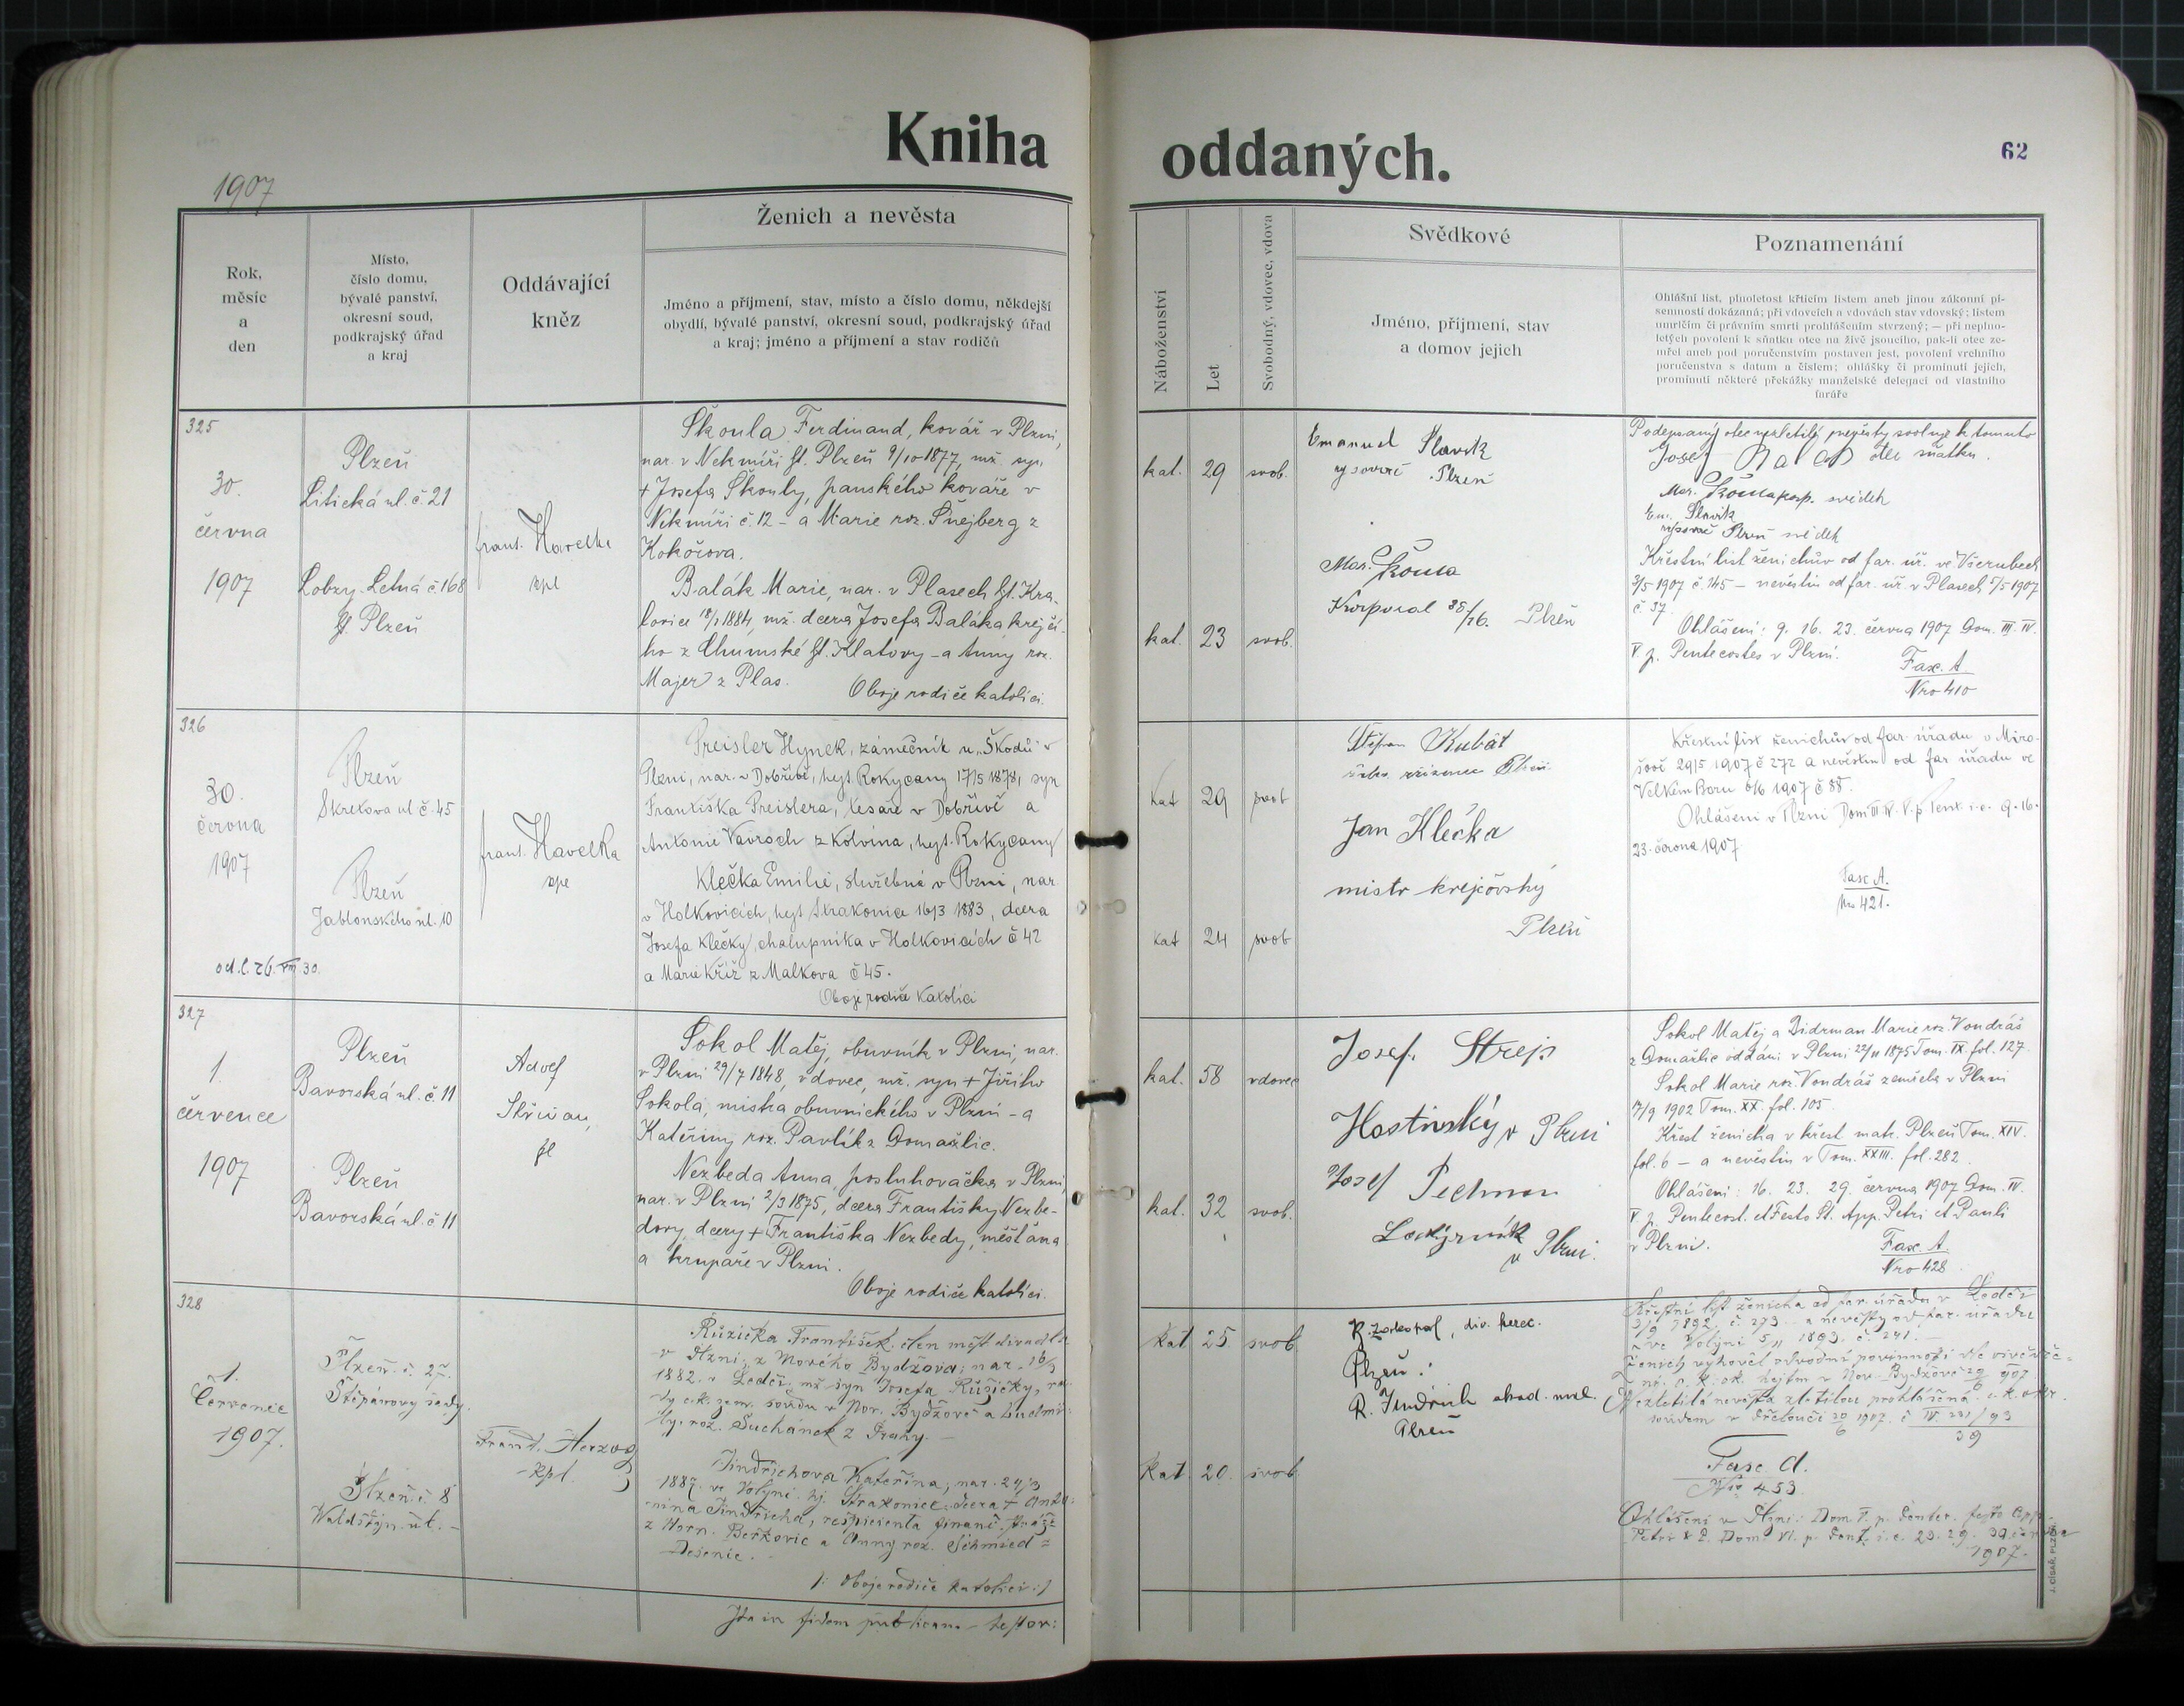 Kniha oddaných.
62
1907
Rok,
měsíc
a
den
Místo,
číslo domu,
bývalé panství,
okresní soud,
podkrajský úřad
a kraj
Oddávající
kněz
Ženich a nevěsta
Jméno a příjmení, stav, místo a číslo domu, někdejší
obydlí, bývalé panství, okresní soud, podkrajský úřad
a kraj; jméno a příjmení a stav rodičů
Náboženství
Let
Svobodný, vdovec, vdova
Svědkové
Jméno, příjmení, stav
a domov jejich
Poznamenání
Ohlášní list, plnoletost křticím listem aneb jinou zákonní pí-
semností dokázaná; při vdovcích a vdovách stav vdovský; listem
umrlčím či právním smrti prohlášením stvrzený; — při neplno-
letých povolení k sňatku otce na živě jsoucího, pak-li otec ze-
mřel aneb pod poručenstvím postaven jest, povolení vrchního
poručenstva s datum a číslem; ohlášky či prominutí jejich,
prominutí některé překážky manželské delegací od vlastního
faráře
325
30.
června
1907
Plzeň
Litická ul. č. 21
Lobzy. Letná č. 168
Plzeň
frant. Havelka
kpl
Škoula Ferdinand, kovář v Plzni,
nar. v Nekmíři Plzeň 9/10 1877, mž. syn
+ Josefa Škouly, panského kováře v
Nekmíři č. 12 – a Marie roz. Šnejberg z
Kokořova.
Balák Marie, nar. v Plasech Kra-
lovice 1884, mž. dcera Josefa Baláka krejčí-
ho z Chumské Klatovy – a Anny roz.
Majer z Plas. Oboje rodiče katolíci.
kat. 29 svob.
kat. 23 svob.
Emanuel Slavík
rysovač Plzeň
Mar. Škoula
Korporal 35/16. Plzeň
Podepsaný otec nezletilé nevěsty svoluje k tomuto
Josef Balák otec sňatku.
Mar. Škoula korp. svědek
Em. Slavík
rysovač Plzeň svědek
Křestní list ženichův od far. úř. ve Všerubech
3/5 1907 č. 145 – nevěstin od far. úř. v Plasech 5/5 1907
č. 37.
Ohlášení: 9. 16. 23. června 1907 Dom. III. IV.
V p. Pentecostes v Plzni.
Fasc. A
Nro 410
326
30.
června
1907
Plzeň
Skrétova ul č. 45
Plzeň
Jablonského ul. 10
od. l. 26. VIII 30.
frant. Havelka
kpl
Preisler Hynek, zámečník u „Škodů" v
Plzni, nar. v Dobřívě, hejt. Rokycany 17/5 1878, syn
Františka Preislera, tesaře v Dobřívě a
Antonie Vavroch z Kolvína, hejt. Rokycany
Klečka Emilie, služebná v Plzni, nar.
v Holkovicích, hejt Strakonice 16/3 1883, dcera
Josefa Klečky, chalupníka v Holkovicích č 42
a Marie Kříž z Malkova č 45.
Oboje rodiče Katolíci
Kat 29 svob
Kat 24 svob
Štěpan Kubát
zřízenec Plzeň
Jan Klečka
mistr krejčovský
Plzeň
Křestní list ženichův od far. úřadu v Miro-
šově 29/5 1907 č 272 a nevěstin od far úřadu ve
Velkém Boru 6/6 1907 č 88.
Ohlášeni v Plzni Dom III. IV. V. p. Pent. i. e. 9. 16.
23. června 1907
Fasc A.
Nro 421.
327
1.
července
1907
Plzeň
Bavorská ul. č. 11
Plzeň
Bavorská ul. č 11
Adolf
Sokol Matěj, obuvník v Plzni, nar.
v Plzni 29/7 1848, vdovec, mž. syn + Jiřího
Sokola, mistra obuvnického v Plzni – a
Kateřiny roz. Pavlík z Domažlic.
Nezbeda Anna, posluhovačka v Plzni,
nar. v Plzni 2/3 1875, dcera Františky Nezbe-
dovy, dcery + Františka Nezbedy, měšťana
a krupaře v Plzni.
Oboje rodiče katolíci.
kat. 58 vdovec
kat. 32 svob.
Josef Strejs
Hostinský v Plzni
Josef Pechman
v Plzni.
Sokol Matěj a Bidrman Marie roz. Vondráš
z Domažlic oddáni v Plzni 22/11 1875 Tom. IX. fol. 127.
Sokol Marie roz. Vondráš zemřela v Plzni
17/9 1902 Tom. XX. fol. 105.
Křest ženicha v křest. matr. Plzeň Tom. XIV.
fol. 6 – a nevěstin v Tom. XXIII. fol. 282.
Ohlášeni: 16. 23. 29. června 1907 Dom. IV.
V. p. Pentecost. et Festo St. App. Petri et Pauli
v Plzni.
Fasc. A.
Nro 428
328
1.
Červenec
1907.
Plzeň. č. 27.
Štěpánovy sady.
Plzeň č. 8
Waldštýn. ul. –
Frant. Herzog
– kpl.
Růžička František, člen měst. divadla
v Plzni, z Nového Bydžova; nar. 16/9
1882. v Ledči, mž. syn Josefa Růžičky, ra-
dy c. k. zem. soudu v Nov. Bydžově a Ludmi-
ly, roz. Suchánek z Prahy. –
Jindřichova Kateřina, nar. 24/3
1887. ve Volyni. hj. Strakonice: dcera + Anto-
nína Jindřicha, respicienta finanč. stráže
z Horn. Beřkovic a Anny roz. Schmied z
Dešenic.
/: Oboje rodiče katolíci :/
Ita in fidem publicam – testor:
Kat 25 svob
Kat 20. svob
R. Zakopal, div. herec.
Plzeň.
R. Jindřich akad. mal.
Plzeň
Křestní list ženicha od far. úřadu v Ledči
1892. č. 273 – a nevěsty od far. úřadu
ve Volyni 5/11 1893. č. 241. –
Ženich vyhověl odvodní povinnosti dle osvědče-
ní c. k. ok. hejtm v Nov. Bydžově 907
Nezletilá nevěsta zletilou prohlášená c. k. okr.
soudem v Přelouči 20/6 1907. č IV. 231/93
39
Fasc. A.
Nro 453.
Ohlášeni v Plzni: Dom. V. p. Pentec. festo App.
Petri & P. Dom. VI. p. Pent. i. e. 23. 29. 30. června
1907.
J. CÍSAŘ, PLZEŇ.